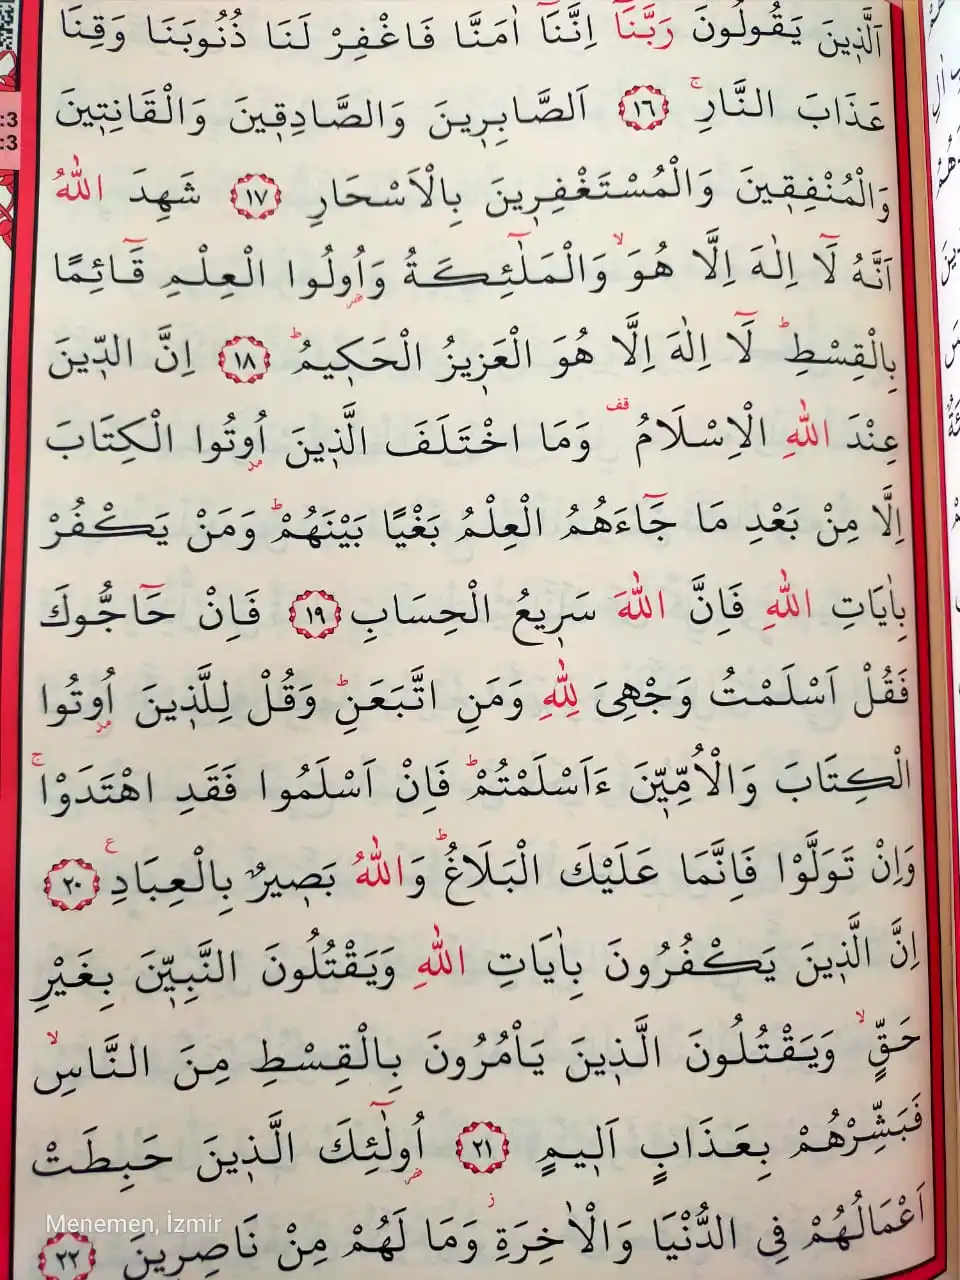 اَلَّذ۪ينَ يَقُولُونَ رَبَّنَٓا اِنَّنَٓا اٰمَنَّا فَاغْفِرْ لَنَا ذُنُوبَنَا وَقِنَا
عَذَابَ النَّارِۚ ﴿١٦﴾ اَلصَّابِر۪ينَ وَالصَّادِق۪ينَ وَالْقَانِت۪ينَ
وَالْمُنْفِق۪ينَ وَالْمُسْتَغْفِر۪ينَ بِالْاَسْحَارِ ﴿١٧﴾ شَهِدَ اللّٰهُ
اَنَّهُ لَٓا اِلٰهَ اِلَّا هُوَۙ وَالْمَلٰٓئِكَةُ وَاُو۬لُوا الْعِلْمِ قَٓائِمًا
بِالْقِسْطِۜ لَٓا اِلٰهَ اِلَّا هُوَ الْعَز۪يزُ الْحَك۪يمُۜ ﴿١٨﴾ اِنَّ الدّ۪ينَ
عِنْدَ اللّٰهِ الْاِسْلَامُ قف وَمَا اخْتَلَفَ الَّذ۪ينَ اُو۫تُوا الْكِتَابَ
اِلَّا مِنْ بَعْدِ مَا جَٓاءَهُمُ الْعِلْمُ بَغْيًا بَيْنَهُمْۜ وَمَنْ يَكْفُرْ
بِاٰيَاتِ اللّٰهِ فَاِنَّ اللّٰهَ سَر۪يعُ الْحِسَابِ ﴿١٩﴾ فَاِنْ حَٓاجُّوكَ
فَقُلْ اَسْلَمْتُ وَجْهِىَ لِلّٰهِ وَمَنِ اتَّبَعَنِۜ وَقُلْ لِلَّذ۪ينَ اُو۫تُوا
الْكِتَابَ وَالْاُمِّيّ۪نَ ءَاَسْلَمْتُمْۜ فَاِنْ اَسْلَمُوا فَقَدِ اهْتَدَوْاۚ
وَاِنْ تَوَلَّوْا فَاِنَّمَا عَلَيْكَ الْبَلَاغُۜ وَاللّٰهُ بَص۪يرٌ بِالْعِبَادِ ع ﴿٢٠﴾
اِنَّ الَّذ۪ينَ يَكْفُرُونَ بِاٰيَاتِ اللّٰهِ وَيَقْتُلُونَ النَّبِيّ۪نَ بِغَيْرِ
حَقٍّۙ وَيَقْتُلُونَ الَّذ۪ينَ يَاْمُرُونَ بِالْقِسْطِ مِنَ النَّاسِۙ
فَبَشِّرْهُمْ بِعَذَابٍ اَل۪يمٍ ﴿٢١﴾ اُو۬لٰٓئِكَ الَّذ۪ينَ حَبِطَتْ
اَعْمَالُهُمْ فِي الدُّنْيَا وَالْاٰخِرَةِۘ وَمَا لَهُمْ مِنْ نَاصِر۪ينَ ﴿٢٢﴾
Menemen, İzmir